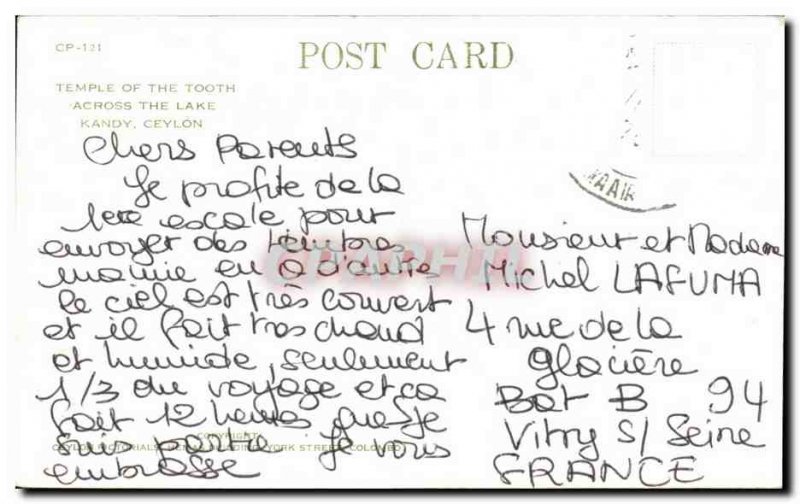 CP-121
POST CARD
TEMPLE OF THE TOOTH
ACROSS THE LAKE
KANDY, CEYLON
Chers Parents
Je profite de la
1ere escale pour
envoyer des timbres
mamie en a d'autres
le ciel est très couvert
et il fait tres chaud
et humide, seulement
1/3 du voyage et ca
fait 12 heures que je
suis partie. Je vous
embrasse
AAIR
Monsieur et Madame
Michel LAFUMA
4 rue de la
glacière
Bat B 94
Vitry s/ Seine
FRANCE
COPYRIGHT
YORK STREET, COLOMBO